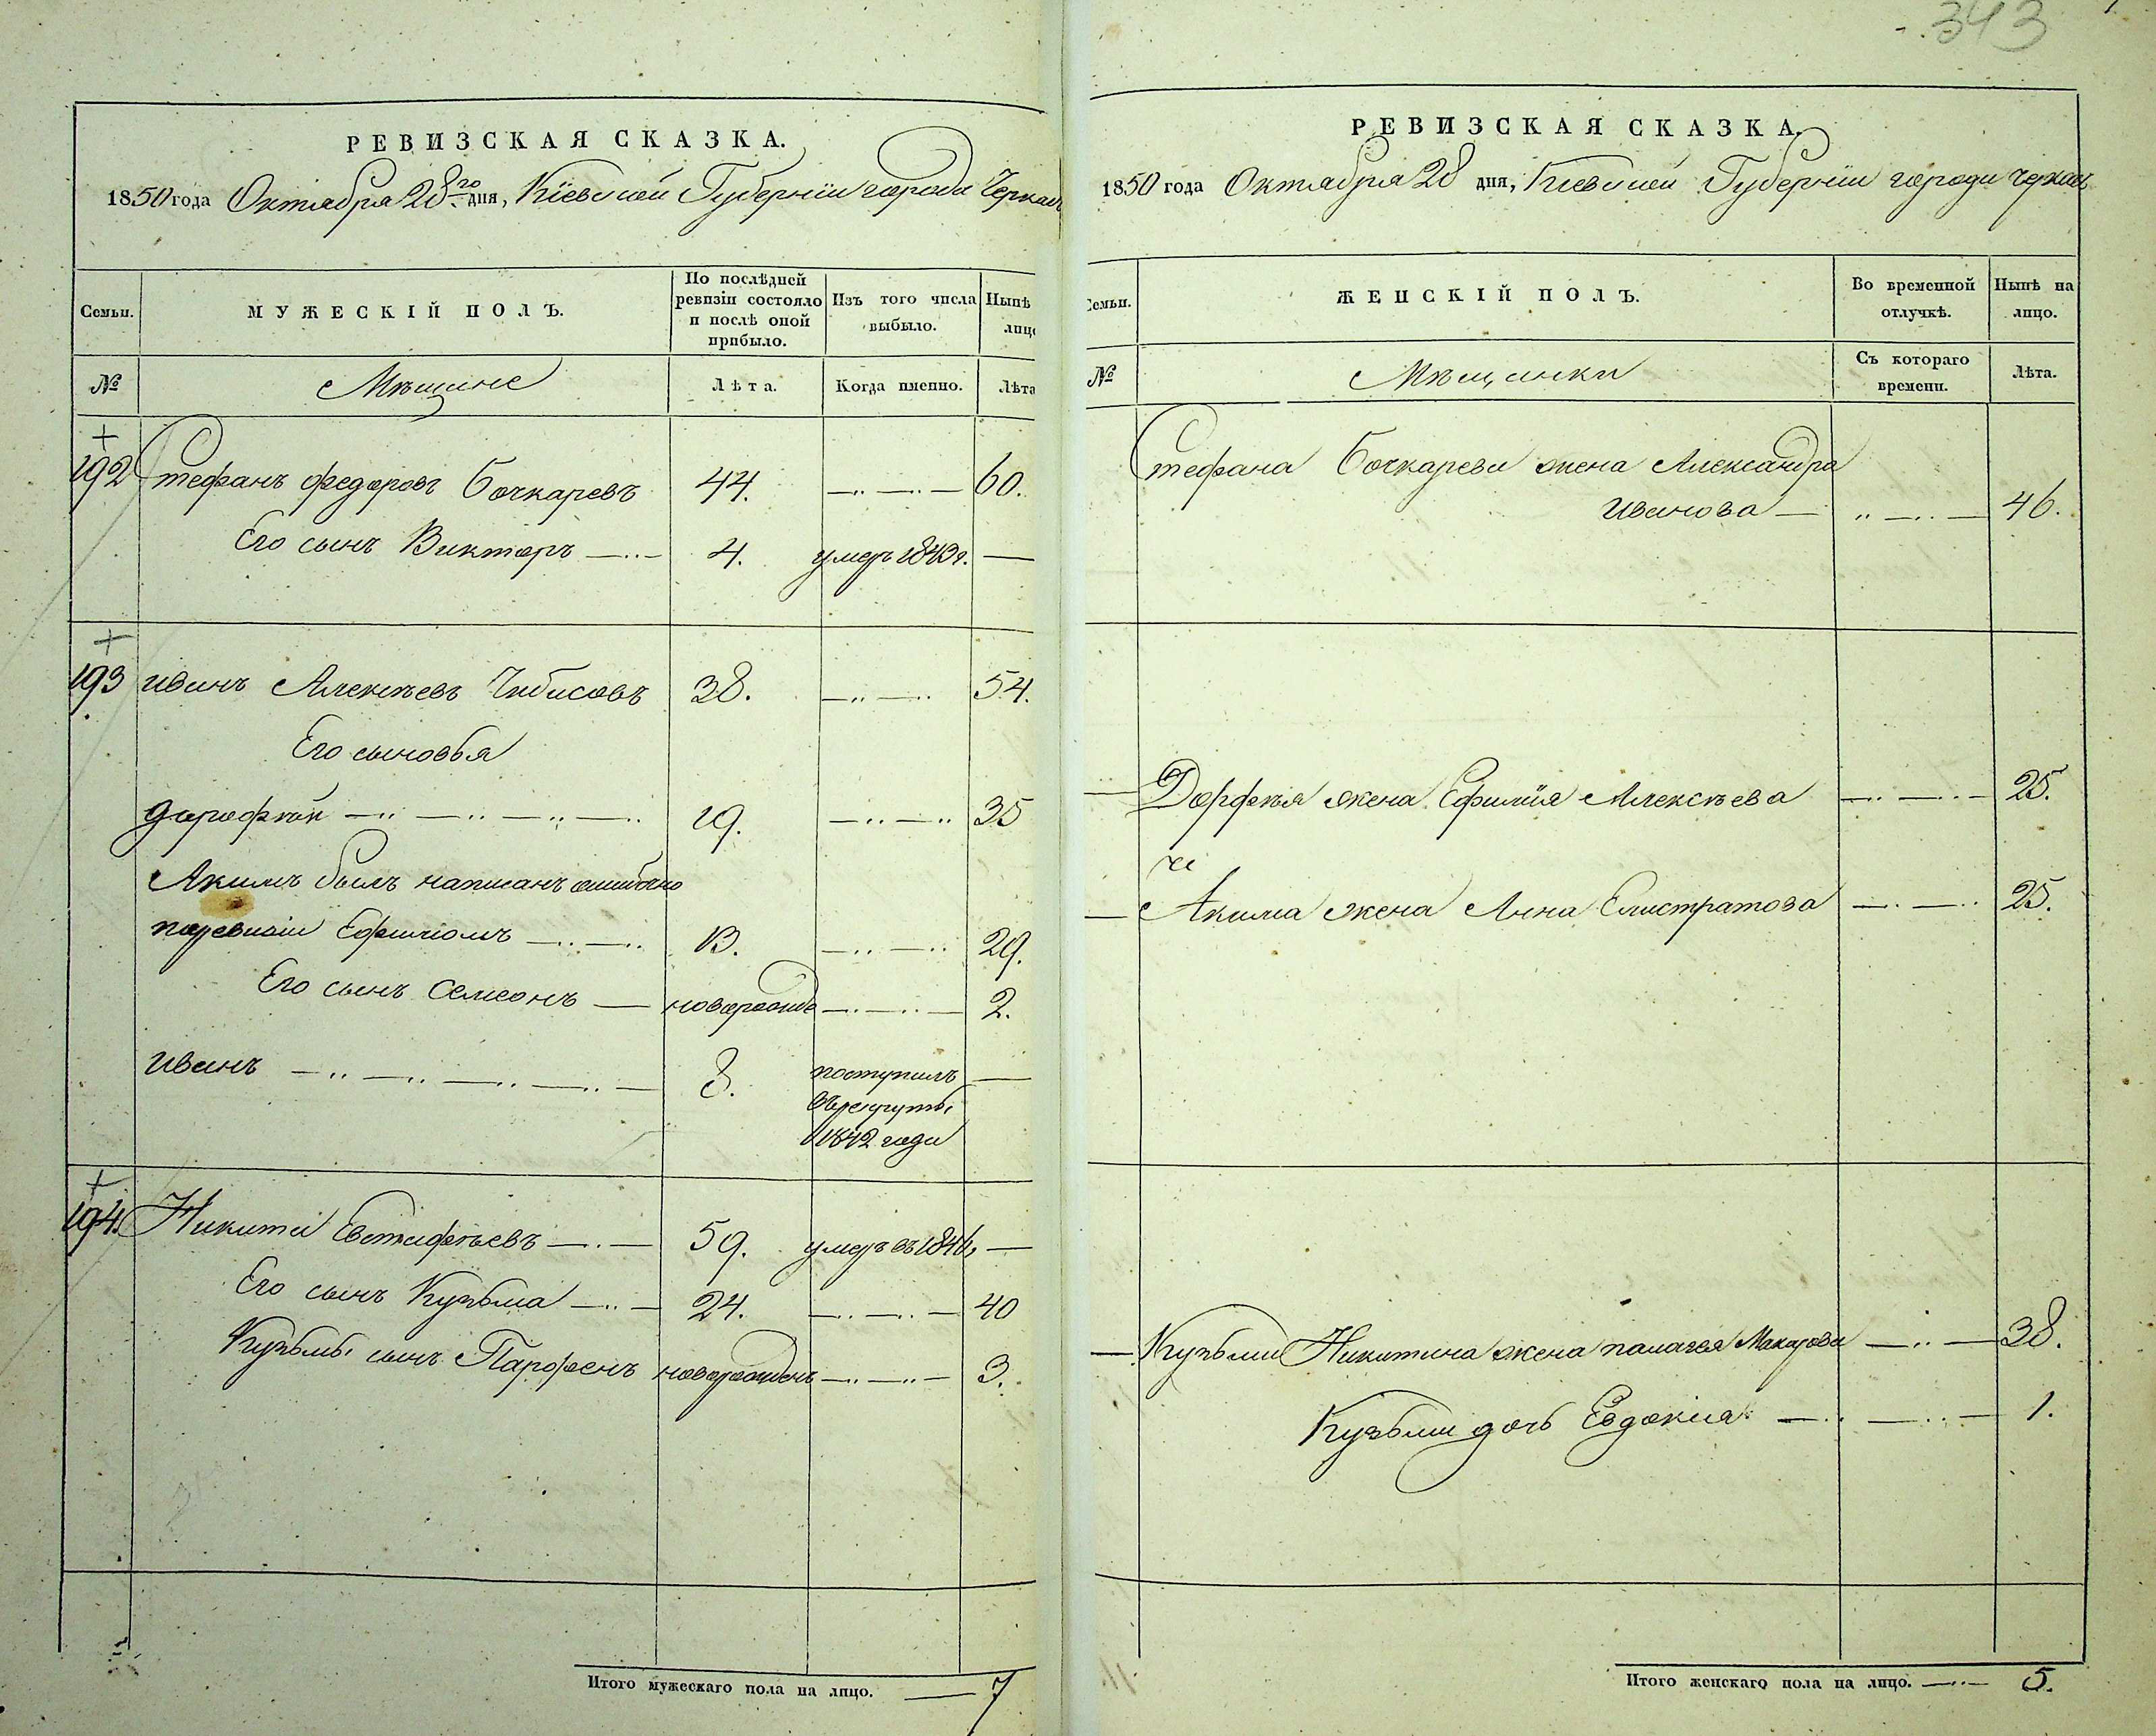 343
РЕВИЗСКАЯ СКАЗКА.
1850 года Октября 28го дня, Кіевской Губерніи города Черкас
Семьи.
МУЖЕСКІЙ ПОЛЪ.
По послѣдней
ревизіи состояло
и послѣ оной
прибыло.
Изъ того числа
выбыло.
Нынѣ
лицо
№
Мѣщане
Лѣта.
Когда именно.
Лѣта
192 Стефанъ Федоровъ Бочкаревъ 44. 60.
Его сынъ Викторъ 4. умеръ 1843 г.
193 Иванъ Алексѣевъ Чибисовъ 38. 54.
Его сыновья
Дорофѣй 19. 35
Акимъ былъ написанъ ошибочно
поревизіи Ефиміомъ 13. 29.
Его сынъ Семеонъ новорожде 2.
Иванъ 8. поступилъ
въ рекруты
1842 года
194. Никита Евстафьевъ 59. умеръ въ 1846,
Его сынъ Кузьма 24. 40
Кузьмы сынъ Парфенъ новорожденъ 3.
Итого мужескаго пола на лицо. 7
РЕВИЗСКАЯ СКАЗКА.
1850 года Октября 28 дня, Кіевской Губерніи города Черкас
Семьи.
ЖЕНСКІЙ ПОЛЪ.
Во временной
отлучкѣ.
Нынѣ на
лицо.
№
Мѣщанки
Съ котораго
времени.
Лѣта.
Стефана Бочкарева жена Александра
Иванова 46.
Дорфѣя жена Ефимія Алексѣева 25.
Акима жена Анна Елистратова 25.
Кузьмы Никитина жена палагея Макарова 38.
Кузьмы дочь Евдокиа 1.
Итого женскаго пола на лицо. 5.